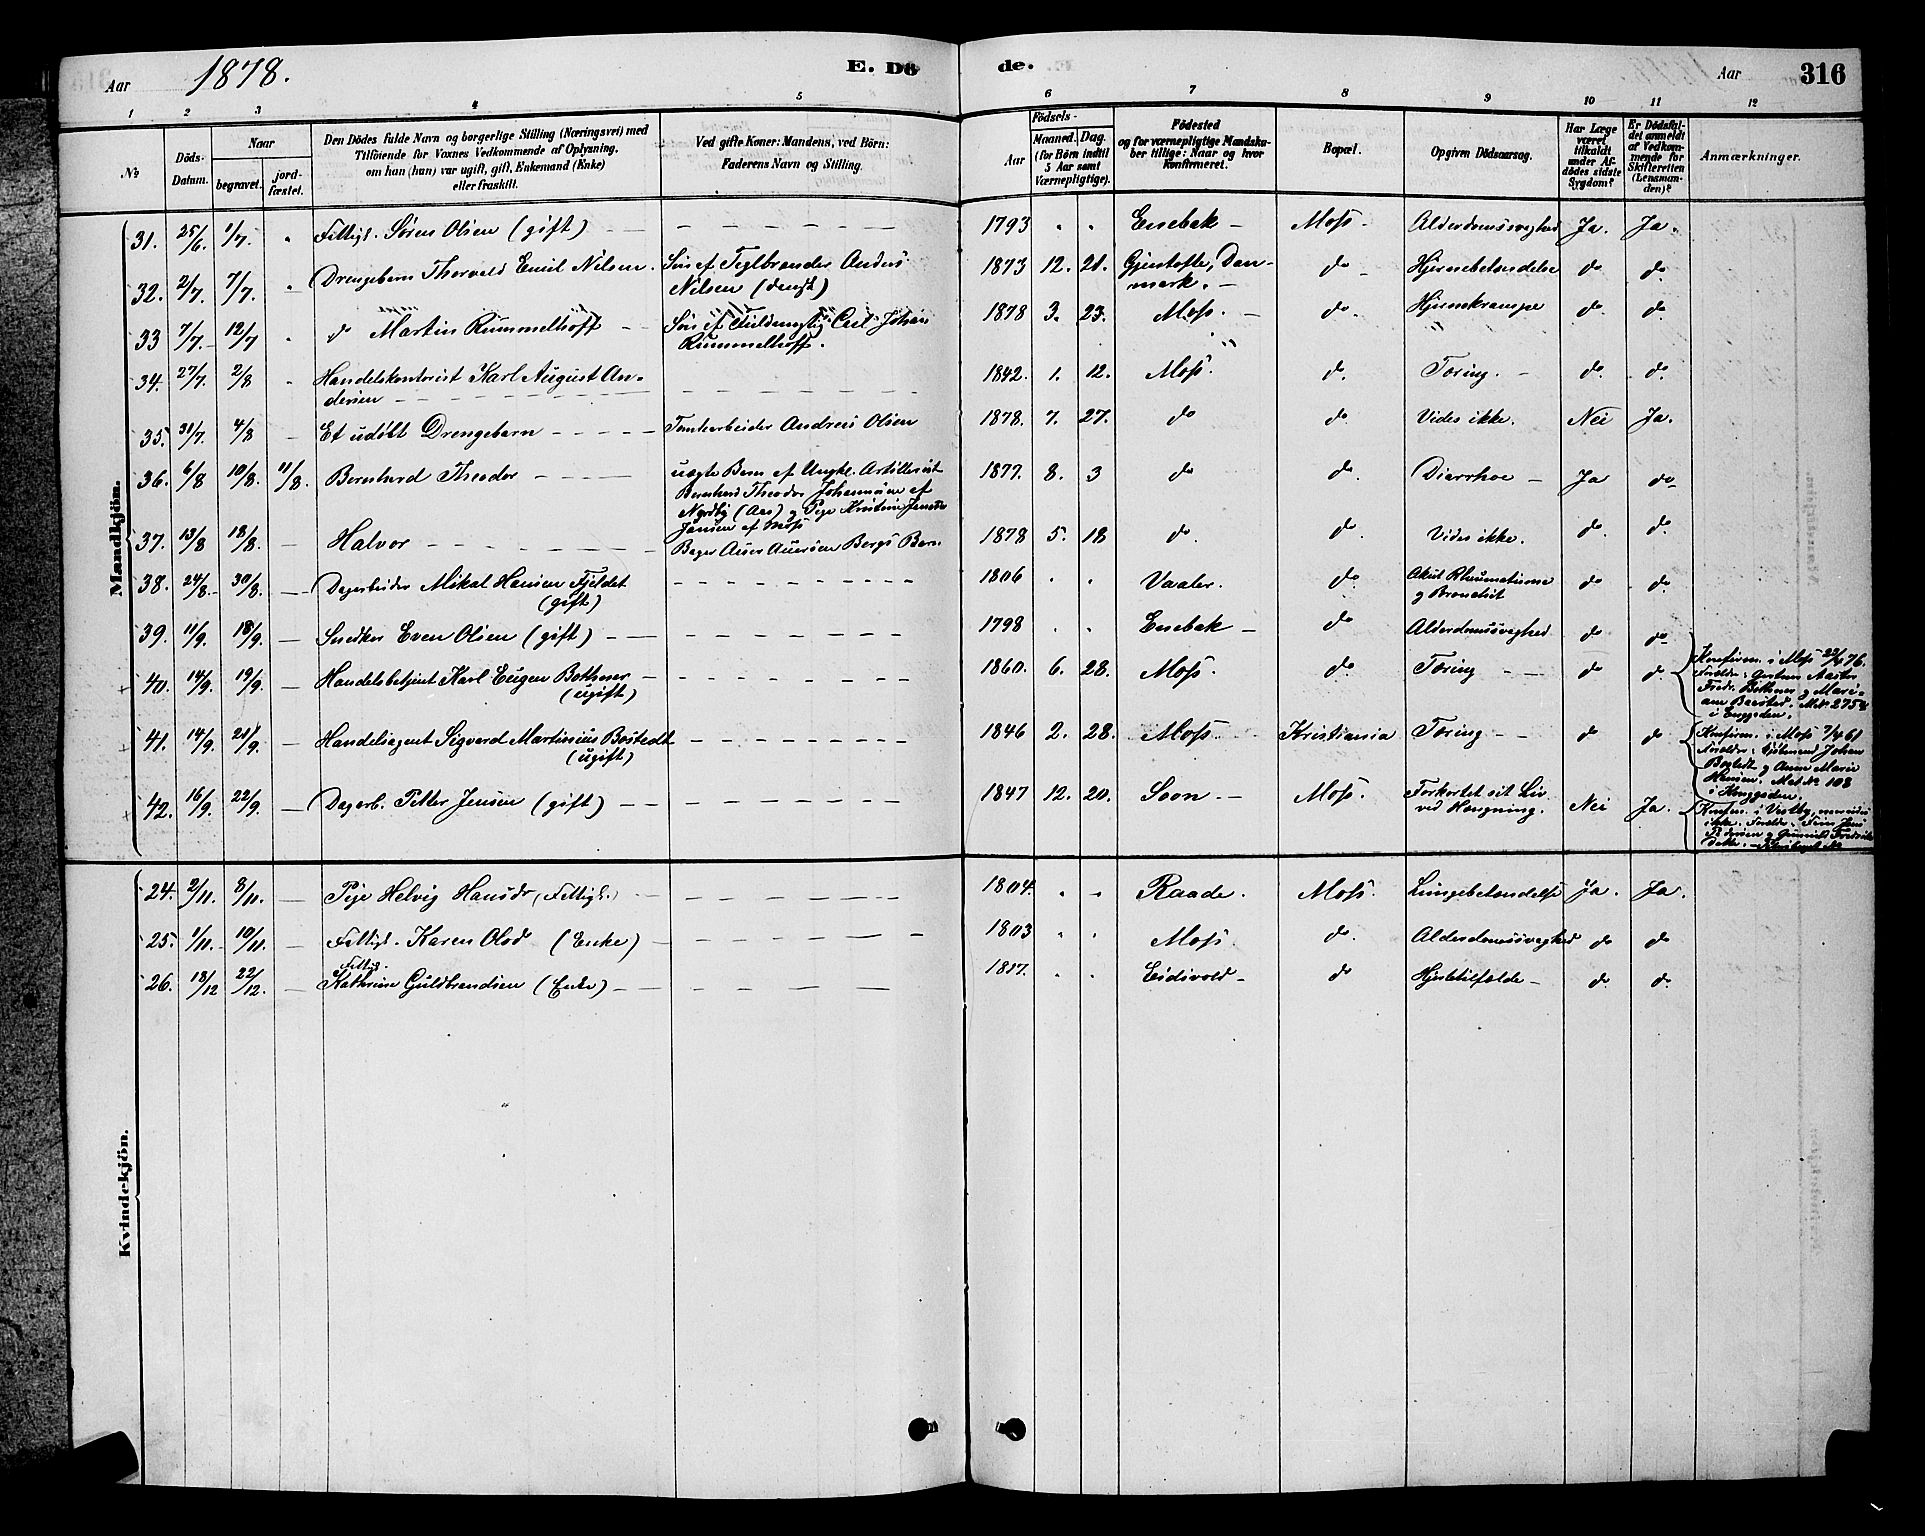 Aar 1878. E. Dö de. Aar 316
1 2 3 4 5 6 7 8 9 10 11 12
No
Döds-Datum.
Naar begravet. jordfæstet.
Den Dödes fulde Navn og borgerlige Stilling (Næringsvei) med
Tilföiende for Voxnes Vedkommende af Oplysning,
om han (hun) var ugift, gift, Enkemand (Enke)
eller fraskilt.
Ved gifte Koner: Mandens, ved Börn:
Faderens Navn og Stilling.
Födsels-
Aar
Maaned. Dag.
(for Börn indtil
5 Aar samt
Værnepligtige).
Födested
og for værnepligtige Mandskaber tillige: Naar og hvor
konfirmeret.
Bopæl.
Opgiven Dödsaarsag.
Har Læge
været
tilkaldt
under Afdödes sidste
Sygdom?
Er Dödsfaldet anmeldt
af Vedkommende for
Skifteretten
(Lensmanden)?
Anmærkninger.
Mandkjön.
31. 25/6 1/7. " Fattigl. Sören Olsen (gift) 1793 " " Enebak Moss. Alderdomssvaghed Ja. Ja.
32. 2/7. 7/7. " Drengebarn Thorvald Emil Nilsen. Sön af Teglbrænder Anders 1873 12. 21. Gjentofte, Dan- do Hjernebetændelse do do
Nilsen (dansk) mark.
33 7/7. 12/7 " do Martin Rummelhoff Sön af Fuldmægtig Carl Johan 1878 3. 23. Moss. do. Hjernekrampe do. do.
Rummelhoff.
34. 27/7. 2/8 " Handelskontorist Karl August An- 1842. 1. 12. Moss. do. Tæring. do. do.
dersen
35. 31/7. 4/8 Et udöbt Drengebarn Tomtearbeider Andreas Olsen 1878. 7. 27. do do. Vides ikke. Nei Ja.
36. 6/8 10/8. 11/8. Bernhard Theodor uægte Barn af Ungkl. Artillerist 1877. 8. 3 do do. Diarrhoe Ja do
Bernhard Theodor Johannesen af
(Aas) og Pige Kristine
Jansen af Moss
37. 13/8 18/8. Halvor Bager Bergs Barn. 1878 5. 18 do. do. Vides ikke. do do.
38. 24/8. 30/8. Dagarbeider Mikal Hansen Fjeldet 1806 " " Vaaler. do Akut Rheumatisme do do.
(gift) og Bronchit
39. 11/9. 18/9. Snedker Even Olsen (gift) 1798 " " Enebak do Alderdomssvaghed do do
40. 14/9. 19/9. Handelsbetjent Karl Eugen Bothner 1860. 6. 28. Moss. do. Tæring do do. Konfirm. i Moss 22/4 76.
(ugift) Forældre:
Fredr. Bothner og Mari-
ane
41. 14/9. 21/9. Handelsagent Sigvard Martinius Bostedt 1846 2. 28. Moss. Kristiania Tæring do do Konfirm. i Moss 7/4 61
(ugift) Forældre: Johan
Bostedt og Anne Marie
Hansen. Mat. No 108
42. 16/9. 22/9. Dagarb. Petter Jensen (gift) 1847 12. 20. Soon. Moss. Forkortet sit Liv Nei Ja. Konfirm. i Vestby,
ved Hængning. ikke. Forældre: Jens
Kvindekjön.
24. 2/11. 8/11. Pige Helvig Hansdr (Fattigl.) 1804. " " Raade. Moss. Lungebetændelse Ja. Ja.
25. 1/11. 10/11. Fattigl. Karen Olsd (Enke) 1803 " " Moss. do. Alderdomssvaghed do do
26. 18/12 22/12. Fattigl. Kathrine Guldbrandsen (Enke) 1817. " " Eidsvold do Hjertetilfælde do. do.